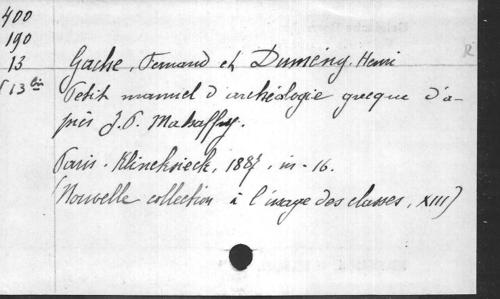 400
190
13
13 bis
R
Gache, Fernand et Dumény, Henri
Petit manuel d'archéologie grecque d'a-
près J. P. Mahaffy.
Paris. Klincksieck, 1887, in-16.
(Nouvelle collection à l'usage des classes, XIII)